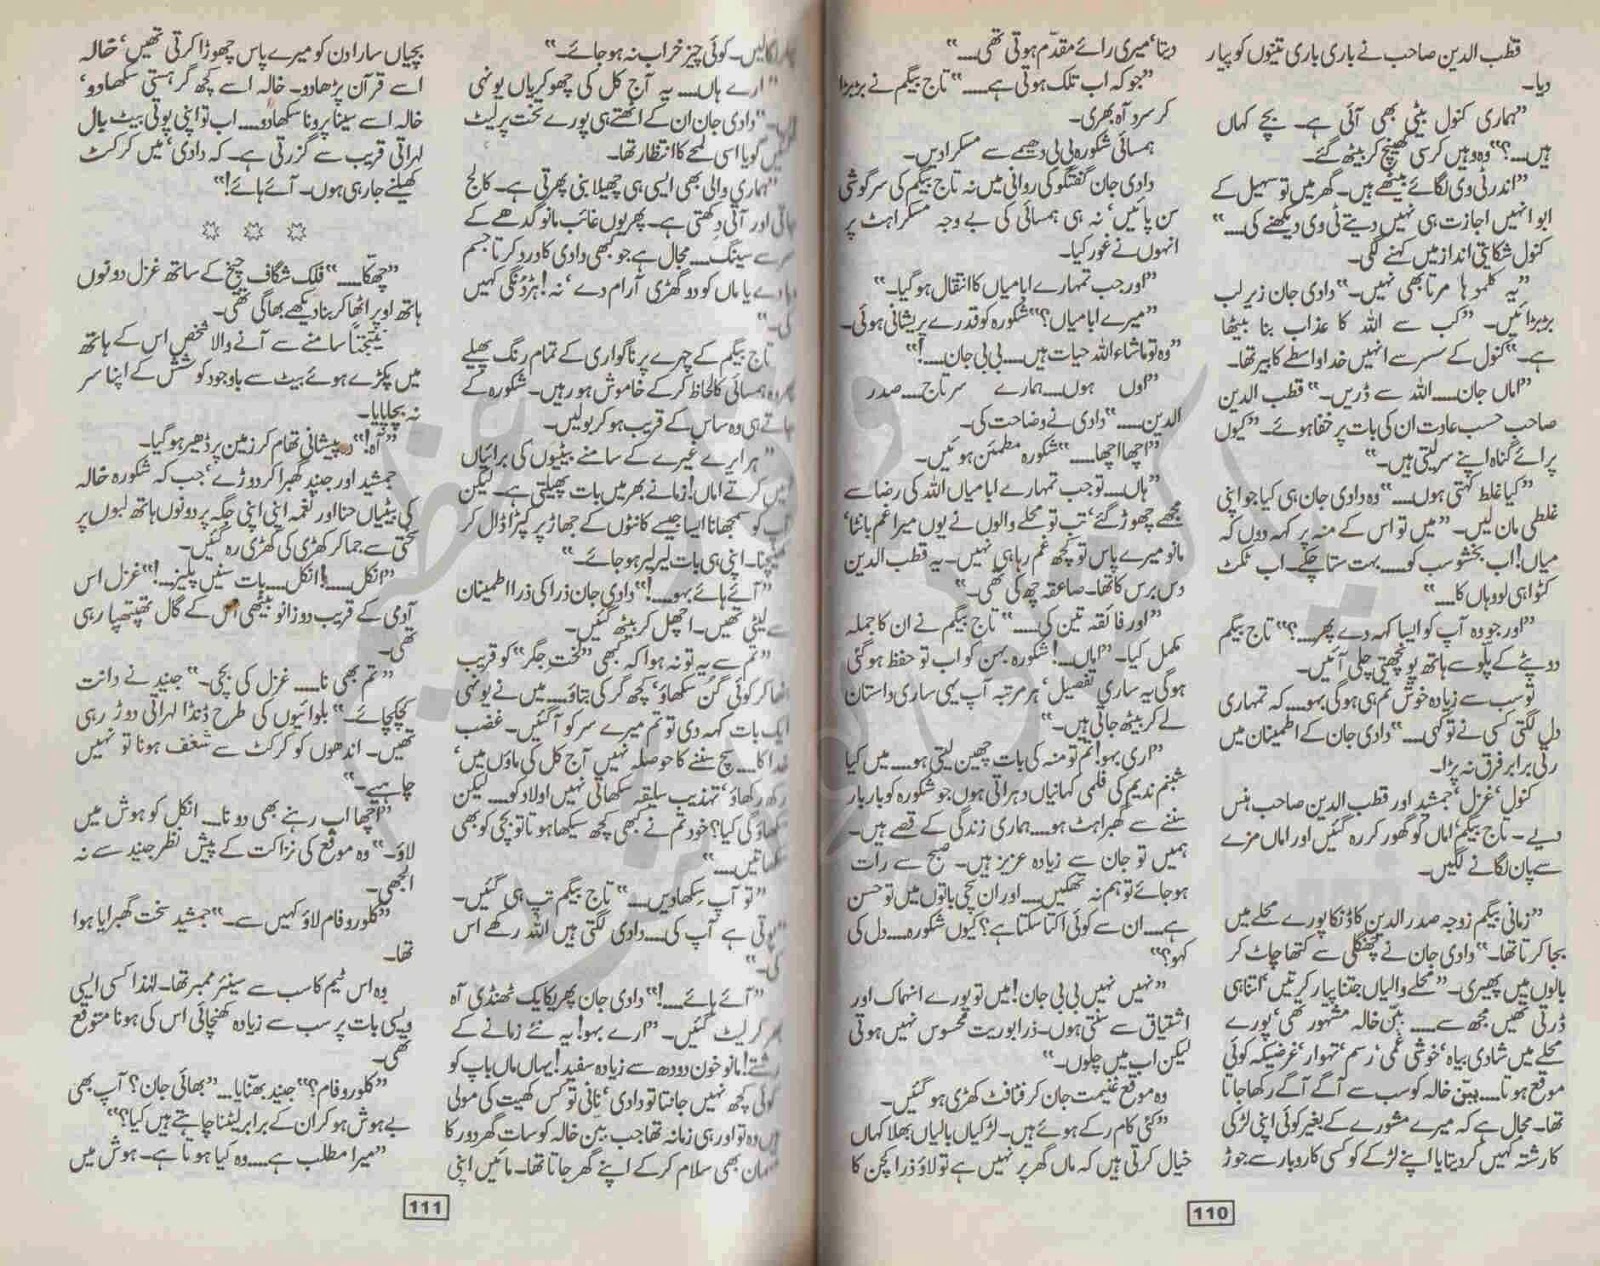 قطب الدین صاحب نے باری باری تینوں کو پیار
دیا۔
”ہماری کنول بیٹی بھی آئی ہے۔ بچے کہاں
ہیں....؟“ وہ وہیں کرسی کھینچ کر بیٹھ گئے۔
”اندر ٹی وی لگائے بیٹھے ہیں۔ گھر میں تو سہیل کے
ابو انہیں اجازت ہی نہیں دیتے ٹی وی دیکھنے کی....“
کنول شکایتی انداز میں کہنے لگی۔
”یہ کلموہا مرتا بھی نہیں۔“ دادی جان زیر لب
بڑبڑائیں۔ ”کب سے اللہ کا عذاب بنا بیٹھا
ہے۔“ کنول کے سسر سے انہیں خدا واسطے کا بیر تھا۔
”اماں جان.... اللہ سے ڈریں۔“ قطب الدین
صاحب حسب عادت ان کی بات پر خفا ہوئے۔ ”کیوں
پرائے گناہ اپنے سر لیتی ہیں۔“
”کیا غلط کہتی ہوں....“ وہ دادی جان ہی کیا جو اپنی
غلطی مان لیں۔ ”میں تو اس کے منہ پر کہہ دوں کہ
میاں! اب بخشو سب کو.... بہت ستا چکے۔ اب ٹکٹ
کٹوا ہی لو وہاں کا....“
”اور جو وہ آپ کو ایسا کہہ دے پھر....؟“ تاج بیگم
دوپٹے کے پلو سے ہاتھ پونچھتی چلی آئیں۔
تو سب سے زیادہ خوش تم ہی ہوگی بہو.... کہ تمہاری
دلی لگتی کسی نے تو کہی....“ دادی جان کے اطمینان میں
رتی برابر فرق نہ پڑا۔
کنول‘ غزل‘ جمشید اور قطب الدین صاحب ہنس
دیے۔ تاج بیگم‘ اماں کو گھور کر رہ گئیں اور اماں مزے
سے پان لگانے لگیں۔
”زمانی بیگم زوجہ صدر الدین کا ڈنکا پورے محلے میں
بجا کرتا تھا۔“ دادی جان نے چھنگلی سے کتھا چاٹ کر
بالوں میں پھیری۔ ”محلے والیاں جتنا پیار کرتیں‘ اتنا ہی
ڈرتی تھیں مجھ سے.... ببّن خالہ مشہور تھی‘ پورے
محلے میں شادی بیاہ‘ خوشی غمی‘ رسم‘ تہوار‘ غرضیکہ کوئی
موقع ہوتا.... ببّن خالہ کو سب سے آگے آگے رکھا جاتا
تھا۔ مجال ہے کہ میرے مشورے کے بغیر کوئی اپنی لڑکی
کا رشتہ کہیں کر دیتا یا اپنے لڑکے کو کسی کاروبار سے جوڑ
دیتا‘ میری رائے مقدم ہوتی تھی....“
”جو کہ اب تلک ہوتی ہے....“ تاج بیگم نے بڑبڑا
کر سرد آہ بھری۔
ہمسائی شکورہ بی بی دھیمے سے مسکرا دیں۔
دادی جان گفتگو کی روانی میں نہ تاج بیگم کی سرگوشی
سن پائیں‘ نہ ہی ہمسائی کی بے وجہ مسکراہٹ پر
انہوں نے غور کیا۔
”اور جب تمہارے ابا میاں کا انتقال ہو گیا۔“
”میرے ابا میاں؟“ شکورہ کو قدرے پریشانی ہوئی۔
”وہ تو ماشاء اللہ حیات ہیں.... بی بی جان....!“
”اوں ہوں.... ہمارے سرتاج.... صدر
الدین....“ دادی نے وضاحت کی۔
”اچھا اچھا....“ شکورہ مطمئن ہوئیں۔
”ہاں.... تو جب تمہارے ابا میاں اللہ کی رضا سے
مجھے چھوڑ گئے‘ تب تو محلے والوں نے یوں میرا غم بانٹا‘
مانو میرے پاس تو کچھ غم رہا ہی نہیں۔ یہ قطب الدین
دس برس کا تھا۔ صاعقہ چھ کی تھی۔“
”اور فائقہ تین کی....“ تاج بیگم نے ان کا جملہ
مکمل کیا۔ ”اماں....! شکورہ بہن کو اب تو حفظ ہو گئی
ہوگی یہ ساری تفصیل‘ ہر مرتبہ آپ یہی ساری داستان
لے کر بیٹھ جاتی ہیں۔“
”اری بہو! تم تو منہ کی بات چھین لیتی ہو.... میں کیا
شبنم ندیم کی فلمی کہانیاں دہراتی ہوں جو شکورہ کو بار بار
سننے سے گھبراہٹ ہو.... ہماری زندگی کے قصے ہیں۔
ہمیں تو جان سے زیادہ عزیز ہیں۔ صبح سے رات
ہو جائے تو ہم نہ تھکیں.... اور ان سچی باتوں میں تو حسن
ہے.... ان سے کوئی اکتا سکتا ہے؟ کیوں شکورہ.... دل کی
کہو؟“
”نہیں نہیں بی بی جان! میں تو پورے انہماک اور
اشتیاق سے سنتی ہوں۔ ذرا بوریت محسوس نہیں ہوتی
لیکن اب میں چلوں۔“
وہ موقع غنیمت جان کر فٹافٹ کھڑی ہو گئیں۔
”کئی کام رکے ہوئے ہیں۔ لڑکیاں بالیاں بھلا کہاں
خیال کرتی ہیں کہ ماں گھر پر نہیں ہے تو لاؤ ذرا کچن کا
110
لگالیں۔ کوئی چیز خراب نہ ہو جائے۔“
”ارے ہاں.... یہ آج کل کی چھوکریاں یونہی
“دادی جان ان کے اٹھتے ہی پورے تخت پر لیٹ
گئیں گویا اسی لمحے کا انتظار تھا۔
”ہماری والی بھی ایسی ہی چھیلا بنی پھرتی ہے۔ کالج
جاتی اور آتی دکھتی ہے۔ پھر یوں غائب مانو گدھے کے
سر سے سینگ.... مجال ہے جو کبھی دادی کا درد کرتا جسم
دبا دے یا ماں کو دو گھڑی آرام دے‘ نہ! ہڑدنگی کہیں
کی۔“
تاج بیگم کے چہرے پر ناگواری کے تمام رنگ پھیلے
پھر وہ ہمسائی کا لحاظ کر کے خاموش ہو رہیں۔ شکورہ کے
جاتے ہی وہ ساس کے قریب ہو کر بولیں۔
”ہر ایرے غیرے کے سامنے بیٹیوں کی برائیاں
نہیں کرتے اماں! زمانے بھر میں بات پھیلتی ہے۔ لیکن
آپ کو سمجھانا ایسا جیسے کانٹوں کے جھاڑ پر کپڑا ڈال کر
کھینچنا۔ اپنی ہی بات لیر لیر ہو جائے۔“
”آئے ہائے بہو....!“ دادی جان ذرا کی ذرا اطمینان
سے لیٹی تھیں۔ اچھل کر بیٹھ گئیں۔
”تم سے یہ تو نہ ہوا کہ کبھی ”لخت جگر“ کو قریب
بٹھا کر کوئی گُن سکھاؤ‘ کچھ گر کی بتاؤ.... میں نے یونہی
ایک بات کہہ دی تو تم میرے سر کو آ گئیں۔ غضب
خدا کا.... سچ سننے کا حوصلہ نہیں آج کل کی ماؤں میں‘
رکھ رکھاؤ‘ تہذیب سلیقہ سکھاتی نہیں اولاد کو.... لیکن
سکھاؤ گی کیا؟ خود تم نے کبھی کچھ سیکھا ہوتا تو بچی کو بھی
سکھاتیں....“
”تو آپ سکھا دیں....“ تاج بیگم تپ ہی گئیں۔
”پوتی ہے آپ کی.... دادی لگتی ہیں اللہ رکھے اس
کی۔“
”آئے ہائے....!“ دادی جان پھر یکایک ٹھنڈی آہ
بھر کر لیٹ گئیں۔ ”ارے بہو! یہ نئے زمانے کے
رشتے! مانو خون دودھ سے زیادہ سفید! یہاں ماں باپ کو
کوئی کچھ نہیں جانتا تو دادی‘ نانی تو کس کھیت کی مولی
ہیں وہ تو اور ہی زمانہ تھا جب ببّن خالہ کو سات گھر دور کا
مہمان بھی سلام کر کے اپنے گھر جاتا تھا۔ مائیں اپنی
بچیاں سارا دن کو میرے پاس چھوڑا کرتی تھیں‘ خالہ
اسے قرآن پڑھا دو۔ خالہ اسے کچھ گر ہستی سکھا دو‘
خالہ اسے سینا پرونا سکھا دو.... اب تو اپنی پوتی بیٹ بال
لہراتی قریب سے گزرتی ہے۔ کہ دادی‘ میں کرکٹ
کھیلنے جا رہی ہوں۔ آئے ہائے!“
”چھکا....“ فلک شگاف چیخ کے ساتھ غزل دونوں
ہاتھ اوپر اٹھا کر بنا دیکھے بھاگی تھی۔
نتیجتاً سامنے سے آنے والا شخص اس کے ہاتھ
میں پکڑے ہوئے بیٹ سے باوجود کوشش کے اپنا سر
نہ بچا پایا۔
”آہ!“ وہ پیشانی تھام کر زمین پر ڈھیر ہو گیا۔
جمشید اور جنید گھبرا کر دوڑے‘ جب کہ شکورہ خالہ
کی بیٹیاں حنا اور نغمہ اپنی اپنی جگہ پر دونوں ہاتھ لبوں پر
سختی سے جما کر کھڑی کی کھڑی رہ گئیں۔
”انکل....! انکل.... بات سنیں پلیز....!“ غزل اس
آدمی کے قریب دو زانو بیٹھی اس کے گال تھپتھپا رہی
تھی۔
”تم بھی نا.... غزل کی بچی۔“ جنید نے دانت
کچکچائے۔ ”بلوائیوں کی طرح ڈنڈا لہراتی دوڑ رہی
تھیں۔ اندھوں کو کرکٹ سے شغف ہونا تو نہیں
چاہیے۔“
”اچھا اب رہنے بھی دو نا.... انکل کو ہوش میں
لاؤ۔“ وہ موقع کی نزاکت کے پیش نظر جنید سے نہ
الجھی۔
”کلوروفام لاؤ کہیں سے۔“ جمشید سخت گھبرایا ہوا
تھا۔
وہ اس ٹیم کا سب سے سینئر ممبر تھا۔ لہٰذا کسی ایسی
ویسی بات پر سب سے زیادہ کھنچائی اس کی ہونا متوقع
تھی۔
”کلوروفام؟“ جنید بھنّایا.... ”بھائی جان؟ آپ بھی
بے ہوش ہو کر ان کے برابر لیٹنا چاہتے ہیں کیا؟“
”میرا مطلب ہے.... وہ کیا ہوتا ہے۔ ہوش میں
111